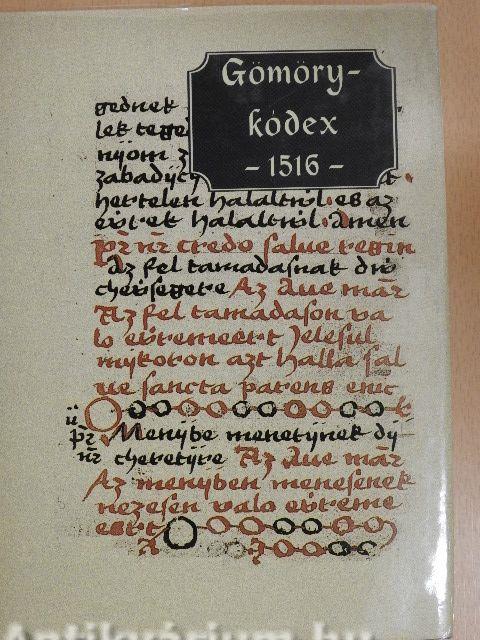 Gömöry-
kódex
- 1516 -
gednek
lek
nijom z
zabadijch
hertelen halaltwl. es az
ewrek halaltwl. Amen
pr nr credo salue regin
Az fel tamadasnak diw
chewsegere Az Aue mar
Az fel tamadason va
lo ewremeert Jelesul
mijkoron azt halla sal
ue sancta parens enic
Menijbe menetijnek dij
cheretijre Az Aue mar
Az menijben menesenek
nezesen valo ewreme
ert
Antikvárium.hu